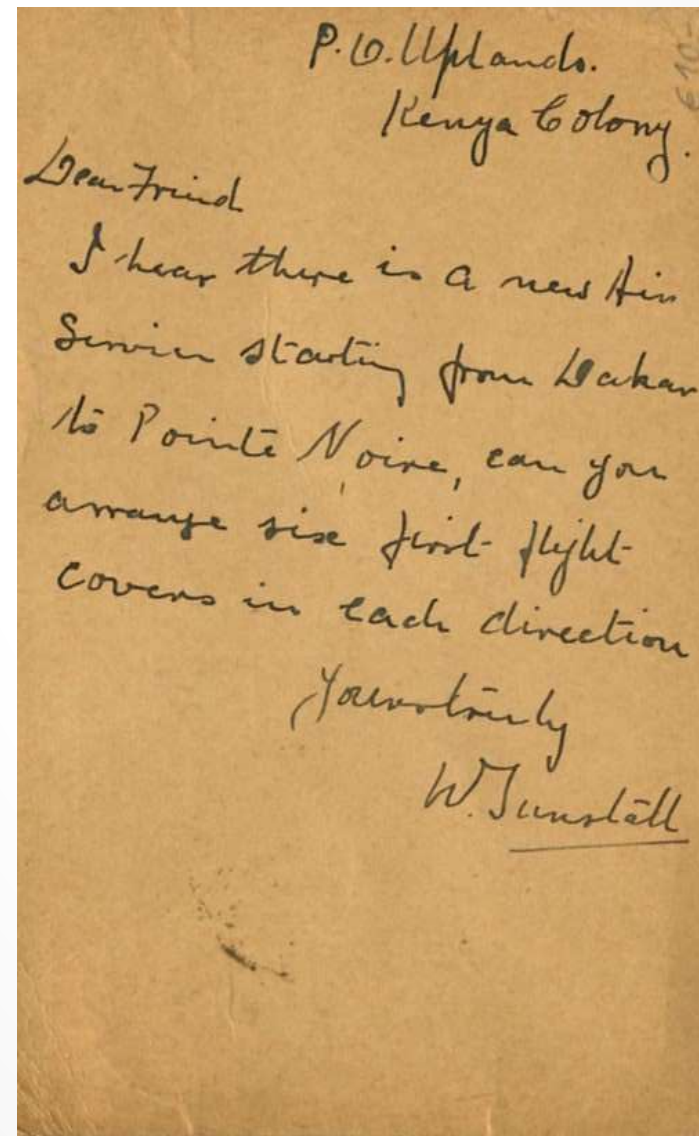 P.O. Uplands.
Kenya Colony.
Dear Friend
I hear there is a new Air
Service starting from Dakar
to Pointe Noire, can you
arrange six first flight
covers in each direction
Yours truly
W. Tunstall